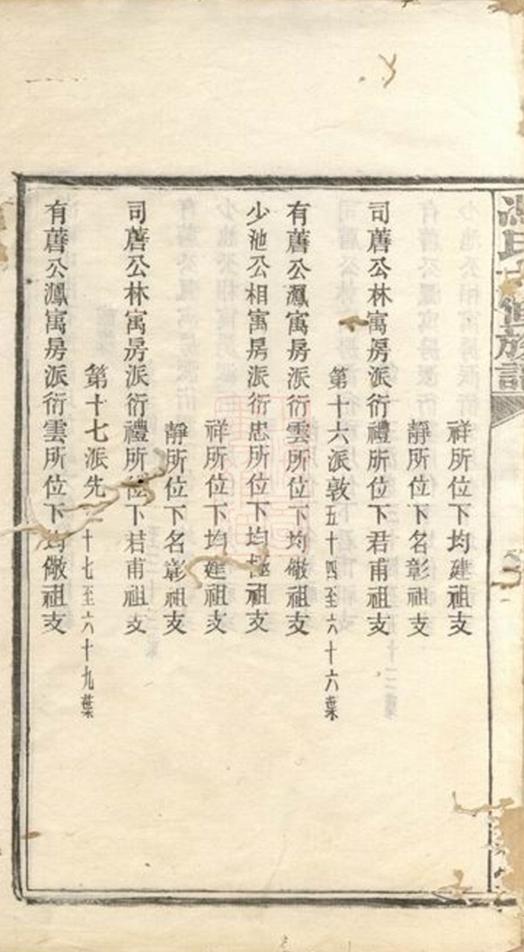 氏 修族譜
祥所位下均建祖支
靜所位下名彰祖支
司舊公林寓房派衍禮所位下君甫祖支
第十六派敦五十四至六十六葉
有舊公鳳寓房派衍雲所位下均儆祖支
少池公相寓房派衍忠所位下均極祖支
祥所位下均建祖支
靜所位下名彰祖支
司舊公林寓房派衍禮所位下君甫祖支
第十七派先 十七至六十九葉
有舊公鳳寓房派衍雲所位下均儆祖支